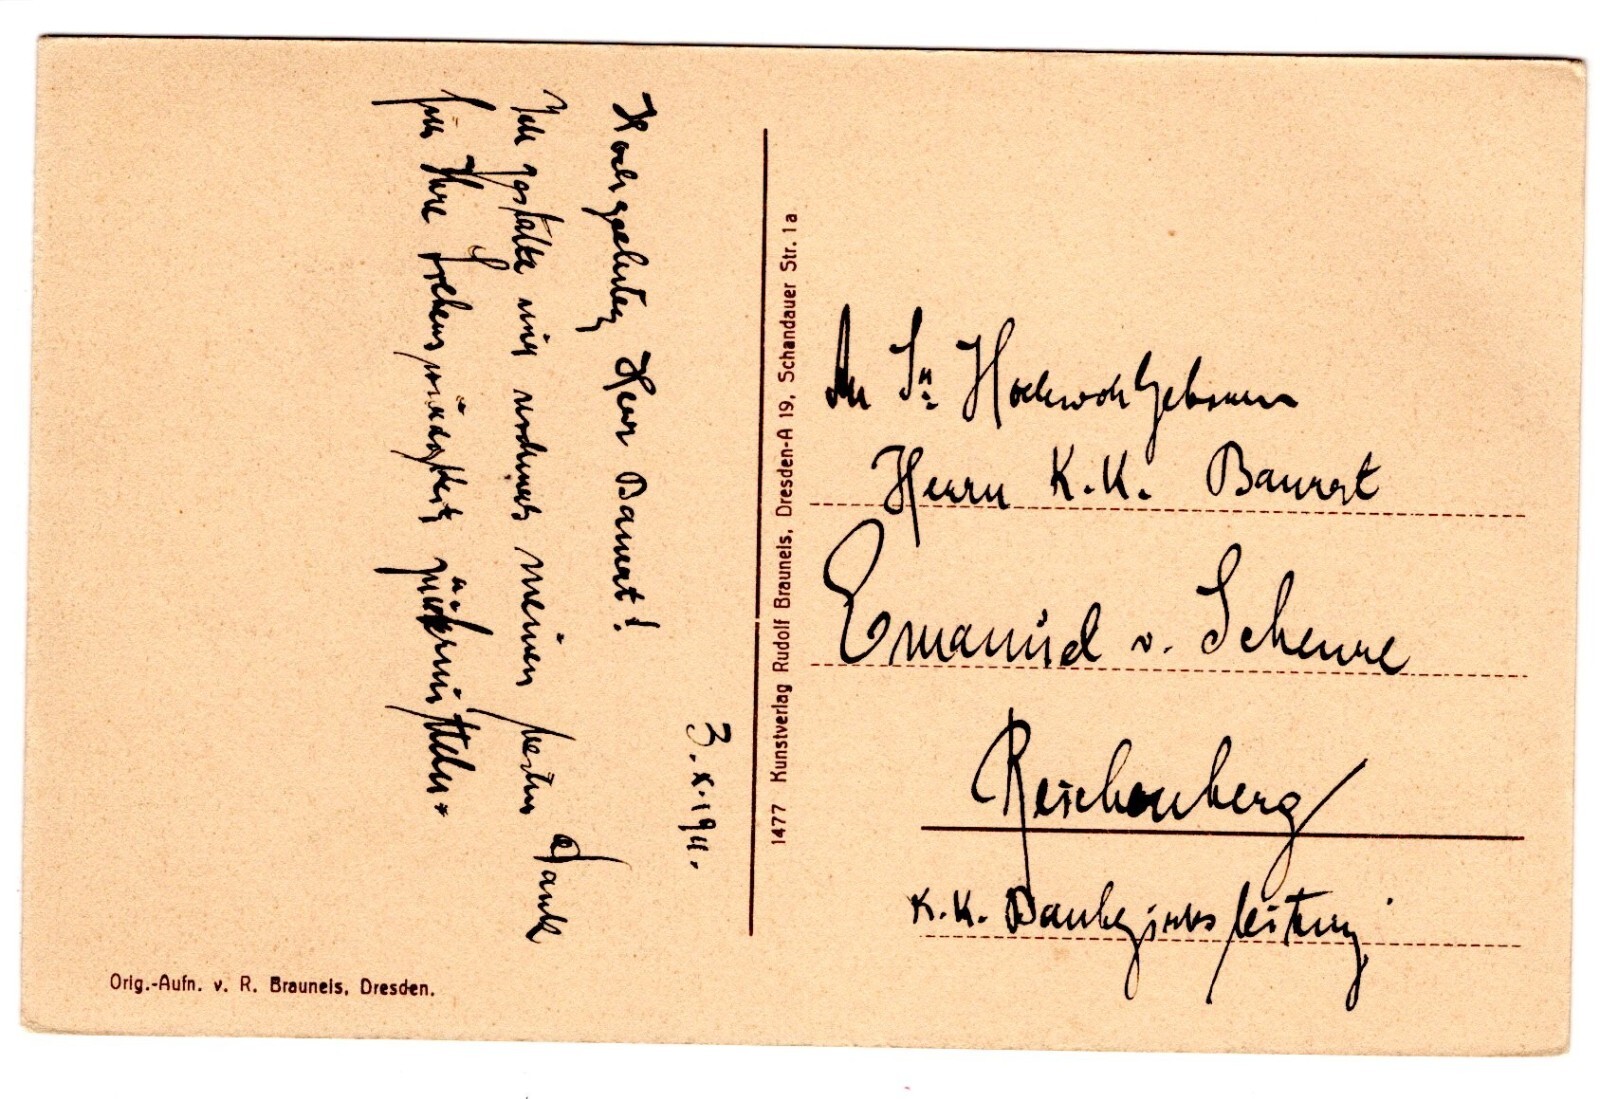 3.X.1911.
Hochgeehrter Herr Baurat!
Ich gestatte mir nochmals meinen besten Dank
für Ihre Liebenswürdigkeit zu übermitteln.
1477 Kunstverlag Rudolf Brauneis, Dresden-A 19, Schandauer Str. 1a
An Sr. Hochwohlgeboren
Herrn K.K. Baurat
Emanuel v. Scheure
Reichenberg
K.K. Baubezirksleitung
Orig.-Aufn. v. R. Brauneis, Dresden.